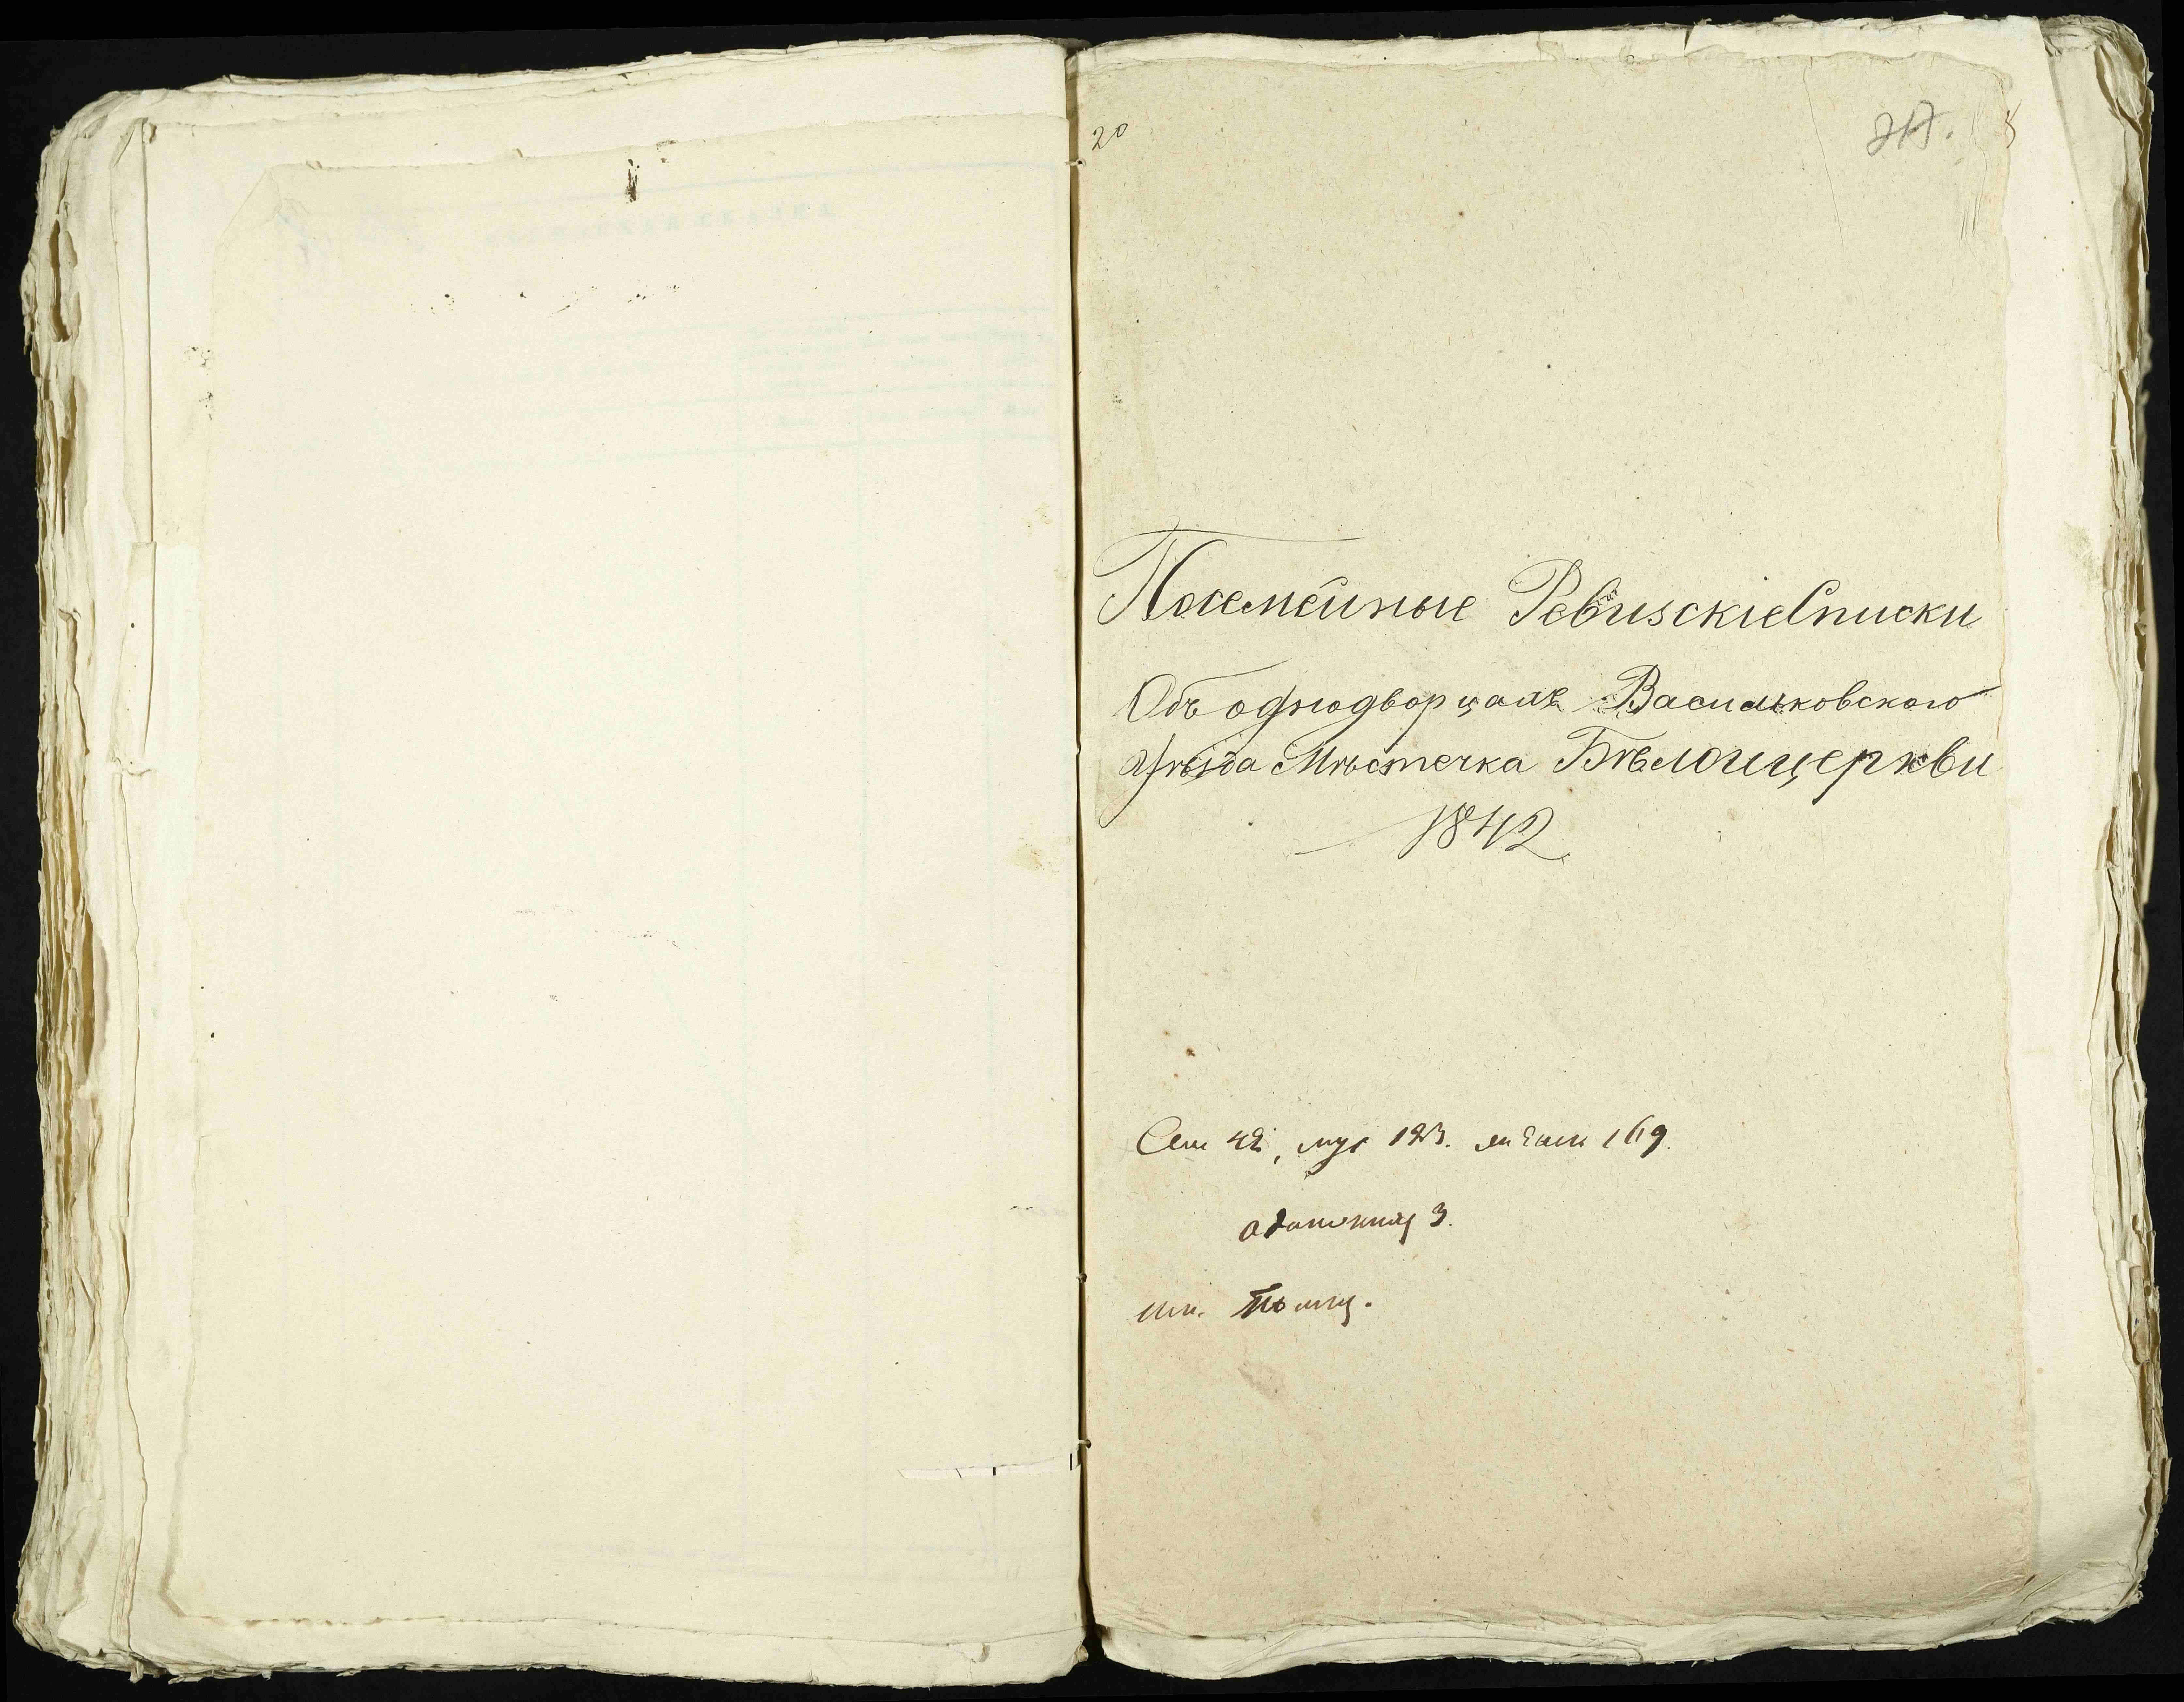 20
Посемейные Ревизскіе Списки
Объ однодворцахъ Васильковского
уѣзда Мѣстечка Бѣлойцеркви
1842
Сем 42, муж 123. 169.
3.